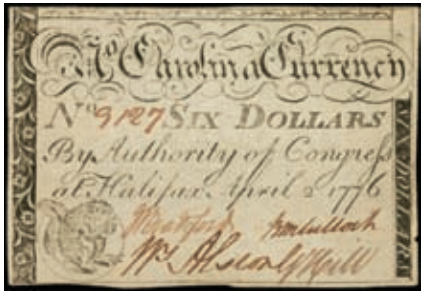 No Carolina Currency
No 9127 SIX DOLLARS
By Authority of Congress
at Halifax April 2 1776
Wm